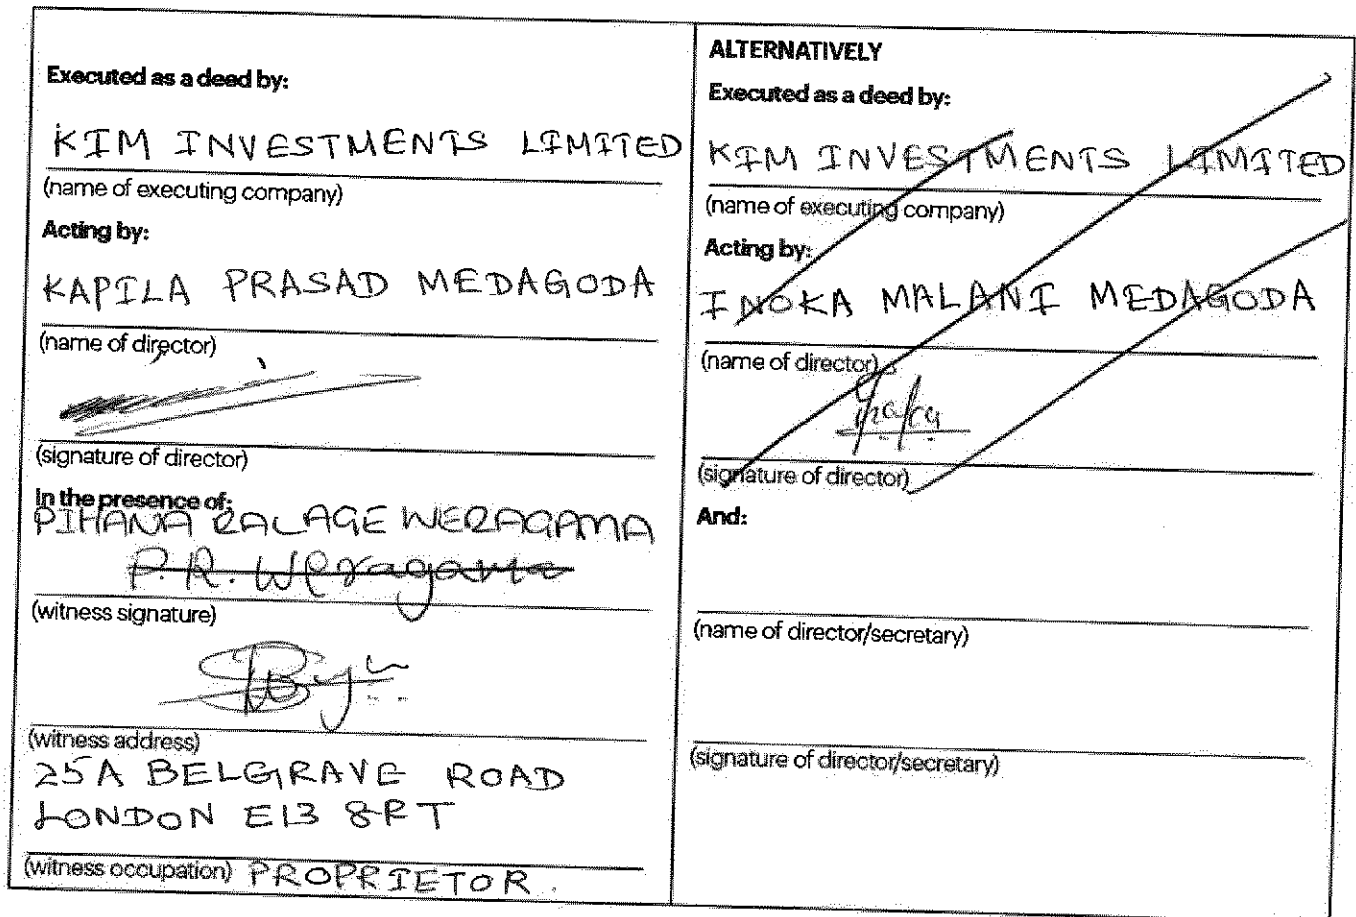 Executed as a deed by:
KIM INVESTMENTS LIMITED
(name of executing company)
Acting by:
KAPILA PRASAD MEDAGODA
(name of director)
(signature of director)
In the presence of:
PIHANA RALAGE WERAGAMA
P.R. Weragama
(witness signature)
(witness address)
25A BELGRAVE ROAD
LONDON E13 8RT
(witness occupation) PROPRIETOR.
ALTERNATIVELY
Executed as a deed by:
KIM INVESTMENTS LIMITED
(name of executing company)
Acting by:
INOKA MALANI MEDAGODA
(name of director)
(signature of director)
And:
(name of director/secretary)
(signature of director/secretary)